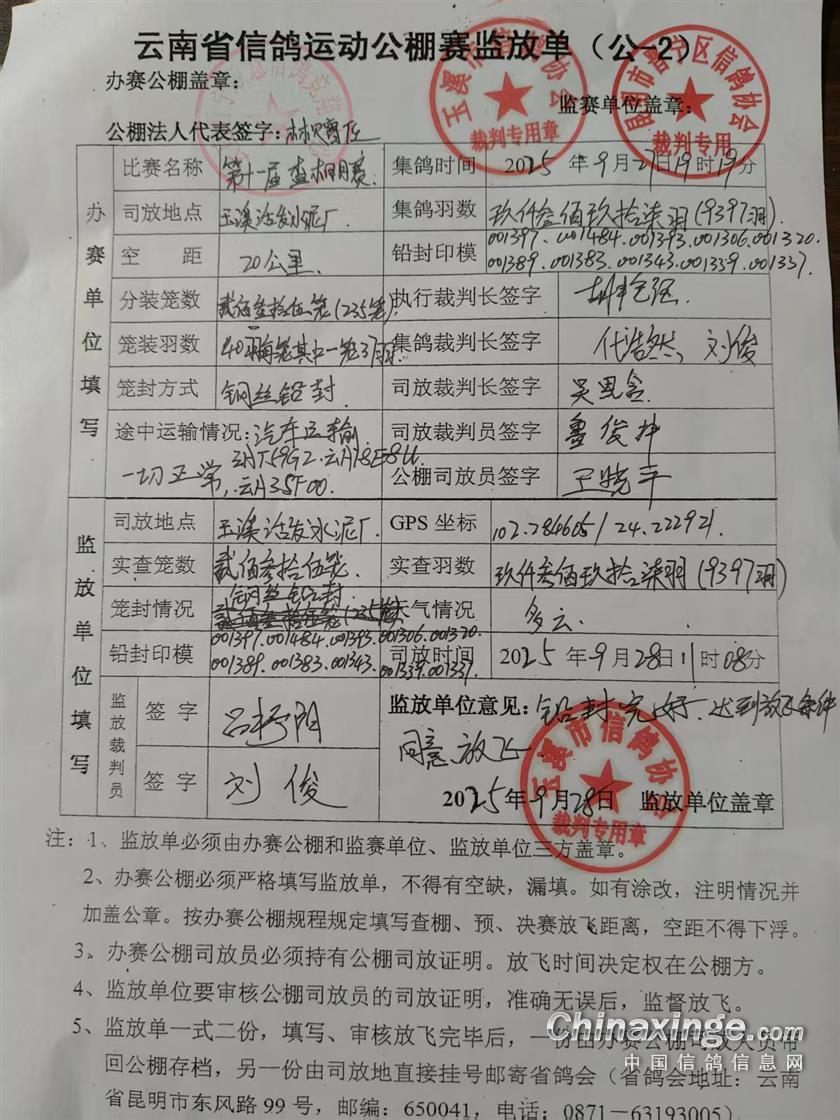 云南省信鸽运动公棚赛监放单（公-2）
办赛公棚盖章：
监赛单位盖章：
公棚法人代表签字：
玉溪市信鸽协会
裁判专用章
昆明市晋宁区信鸽协会
裁判专用
办赛单位填写
比赛名称 第十一届查棚赛 集鸽时间 2025年9月27日19时19分
司放地点 玉溪活发水泥厂 集鸽羽数 玖仟叁佰玖拾柒羽(9397羽)
空距 20公里 铅封印模 001397.001484.001393.001306.001320.
001389.001383.001343.001339.001337.
分装笼数 贰佰叁拾伍笼(235笼) 执行裁判长签字
笼装羽数 40羽每笼其中一笼37羽 集鸽裁判长签字 代浩然，刘俊
笼封方式 钢丝铅封 司放裁判长签字
途中运输情况：汽车运输 司放裁判员签字 鲁俊坤
一切正常, 公棚司放员签字 王晓平
云A35F00.
监放单位填写
司放地点 玉溪活发水泥厂 GPS坐标 102.284605/24.222921
实查笼数 贰佰叁拾伍笼 实查羽数 玖仟叁佰玖拾柒羽(9397羽)
笼封情况 钢丝铅封 天气情况 多云
铅封印模 001397.001484.001393.001306.001320.
001389.001383.001343.001339.001337.
司放时间 2025年9月28日11时08分
监放裁判员
签字
签字 刘俊
监放单位意见：铅封完好.达到放飞条件
同意放飞
2025年9月28日 监放单位盖章
玉溪市信鸽协会
裁判专用章
注：1、监放单必须由办赛公棚和监赛单位、监放单位三方盖章。
2、办赛公棚必须严格填写监放单，不得有空缺，漏填。如有涂改，注明情况并
加盖公章。按办赛公棚规程规定填写查棚、预、决赛放飞距离，空距不得下浮。
3、办赛公棚司放员必须持有公棚司放证明。放飞时间决定权在公棚方。
4、监放单位要审核公棚司放员的司放证明，准确无误后，监督放飞。
5、监放单一式二份，填写、审核放飞完毕后，一份由办赛公棚司放人员带
回公棚存档，另一份由司放地直接挂号邮寄省鸽会（省鸽会地址：云南
省昆明市东风路99号，邮编：650041，电话：0871-63193005）
Chinaxinge.com
中国信鸽信息网